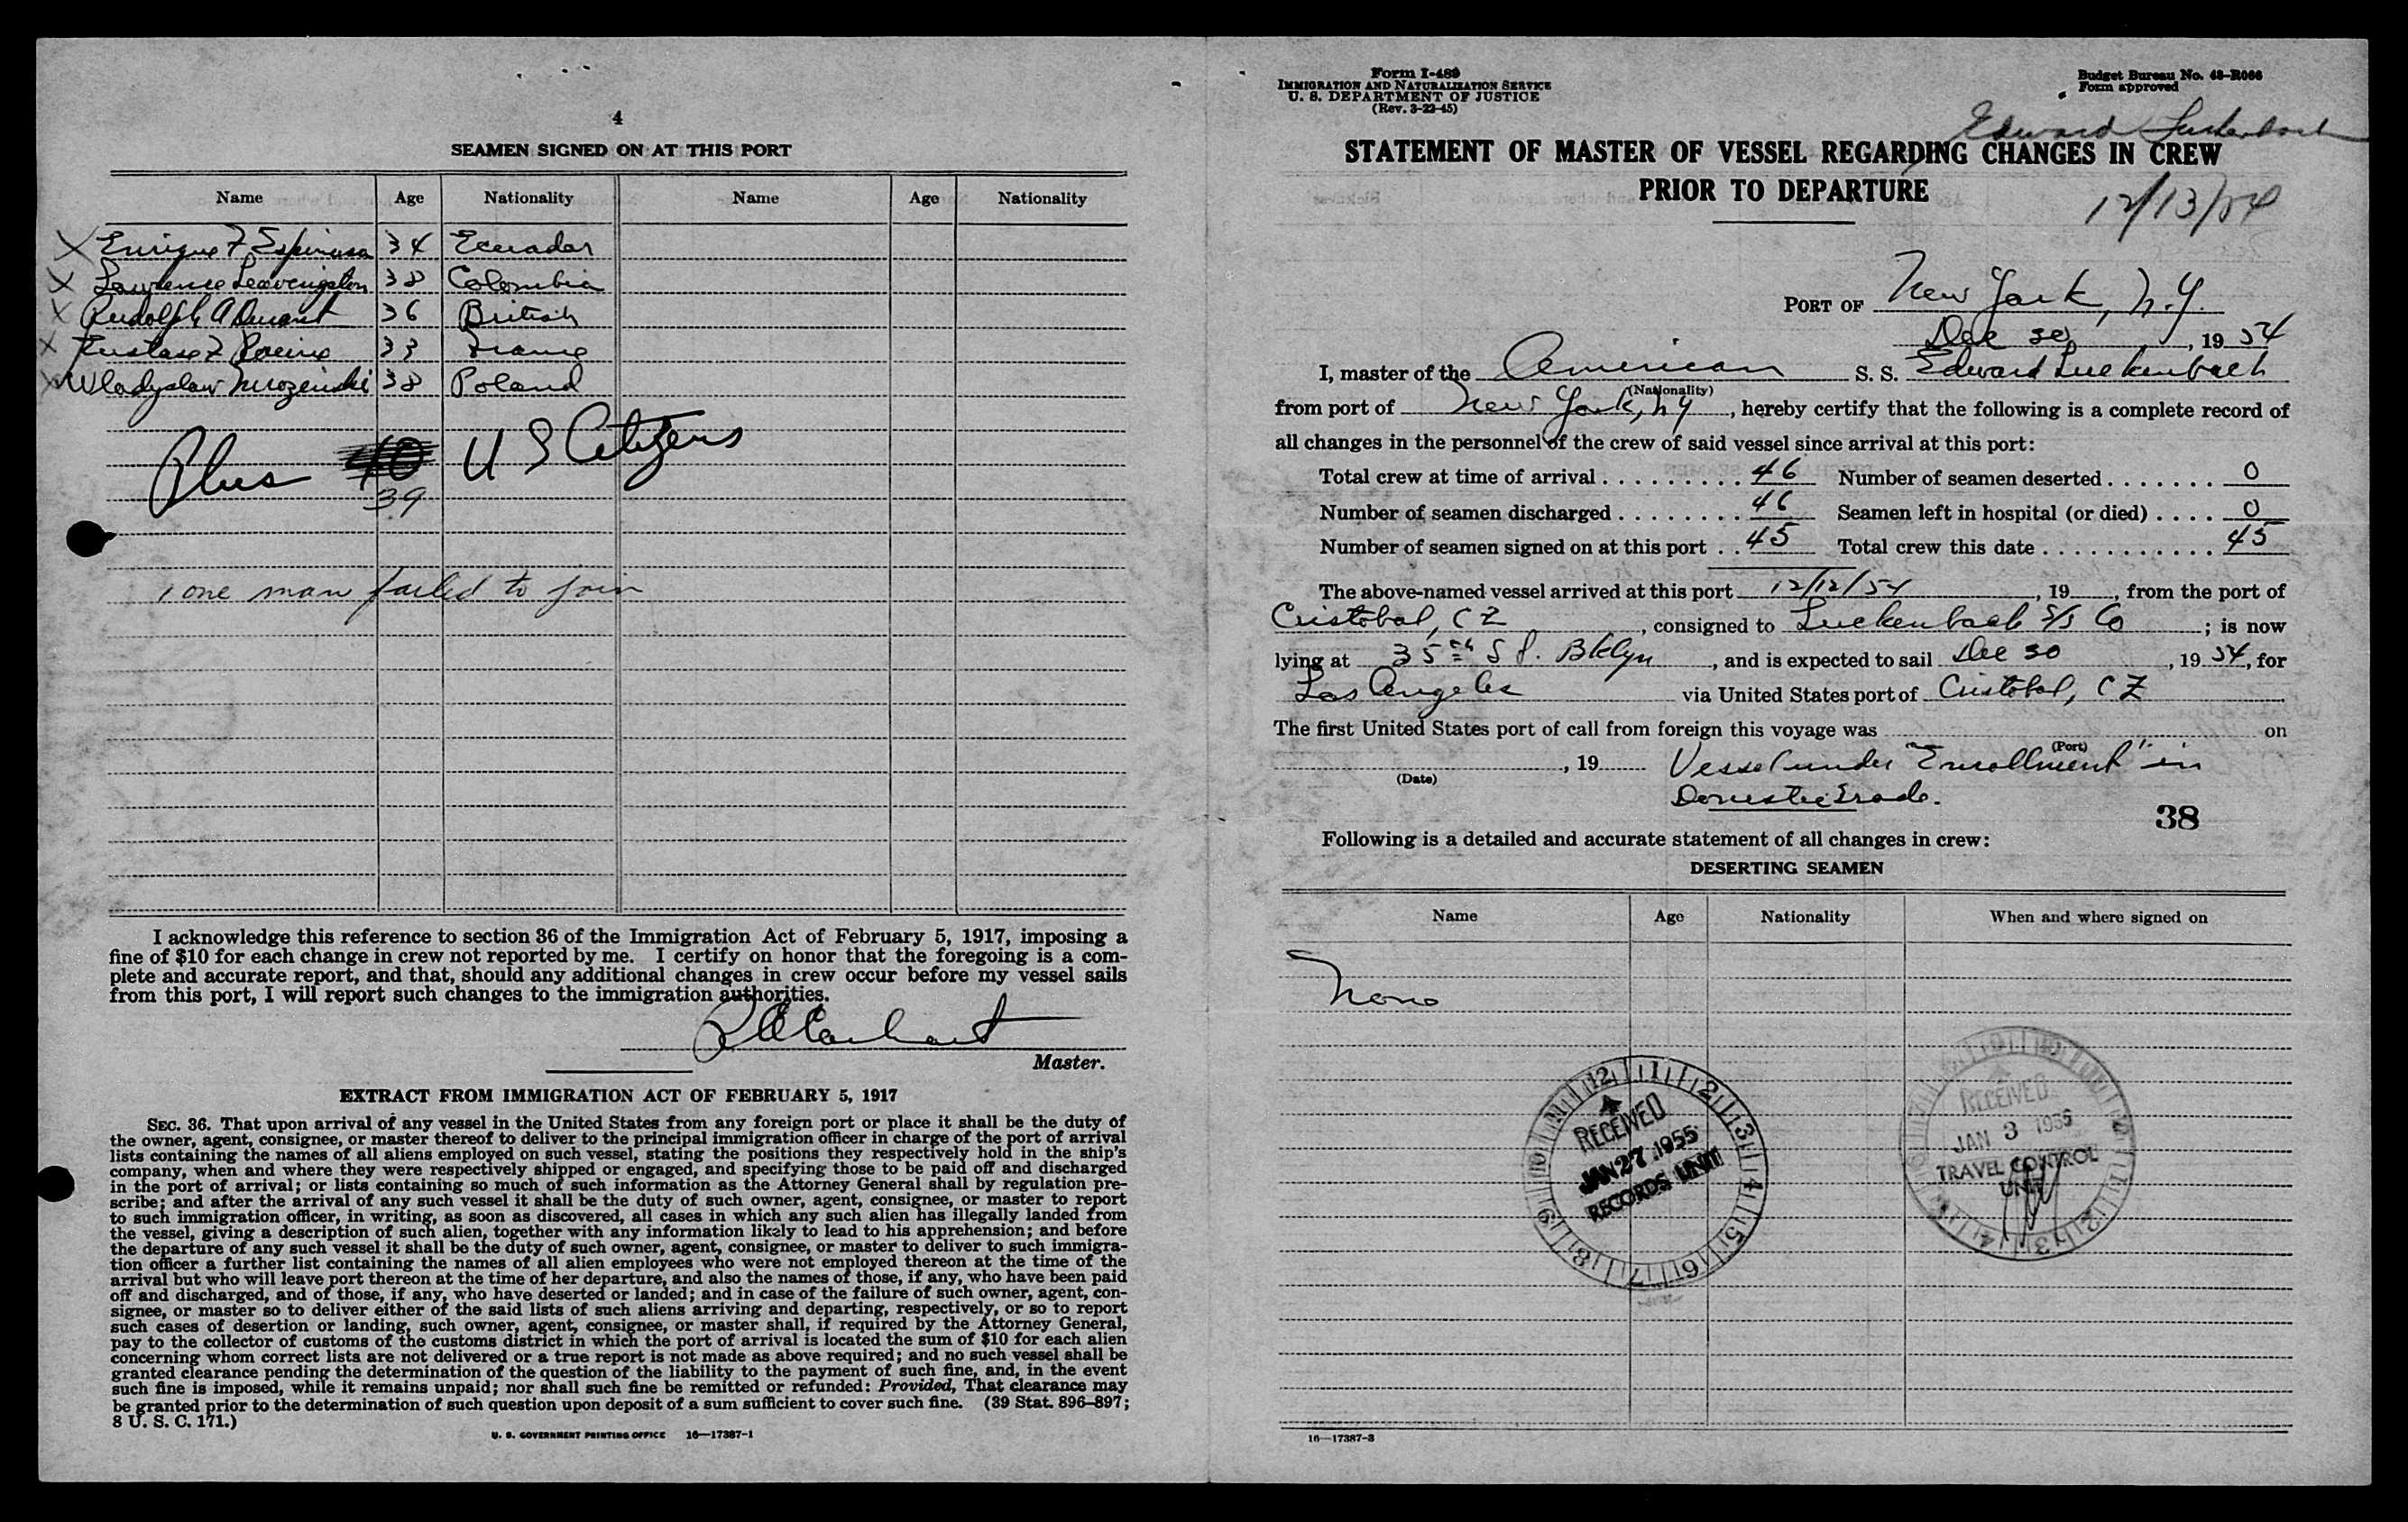 4
SEAMEN SIGNED ON AT THIS PORT
Name Age Nationality Name Age Nationality
X Enrique F Espinosa 34 Ecuador
X Lawrence Leavingston 38 Colombia
X Rudolph A Durant 36 British
X 33 France
X Wladyslaw 38 Poland
Plus 40 U S Citizens
39
1 one man failed to join
I acknowledge this reference to section 36 of the Immigration Act of February 5, 1917, imposing a
fine of $10 for each change in crew not reported by me. I certify on honor that the foregoing is a com-
plete and accurate report, and that, should any additional changes in crew occur before my vessel sails
from this port, I will report such changes to the immigration authorities.
Master.
EXTRACT FROM IMMIGRATION ACT OF FEBRUARY 5, 1917
SEC. 36. That upon arrival of any vessel in the United States from any foreign port or place it shall be the duty of
the owner, agent, consignee, or master thereof to deliver to the principal immigration officer in charge of the port of arrival
lists containing the names of all aliens employed on such vessel, stating the positions they respectively hold in the ship's
company, when and where they were respectively shipped or engaged, and specifying those to be paid off and discharged
in the port of arrival; or lists containing so much of such information as the Attorney General shall by regulation pre-
scribe; and after the arrival of any such vessel it shall be the duty of such owner, agent, consignee, or master to report
to such immigration officer, in writing, as soon as discovered, all cases in which any such alien has illegally landed from
the vessel, giving a description of such alien, together with any information likely to lead to his apprehension; and before
the departure of any such vessel it shall be the duty of such owner, agent, consignee, or master to deliver to such immigra-
tion officer a further list containing the names of all alien employees who were not employed thereon at the time of the
arrival but who will leave port thereon at the time of her departure, and also the names of those, if any, who have been paid
off and discharged, and of those, if any, who have deserted or landed; and in case of the failure of such owner, agent, con-
signee, or master so to deliver either of the said lists of such aliens arriving and departing, respectively, or so to report
such cases of desertion or landing, such owner, agent, consignee, or master shall, if required by the Attorney General,
pay to the collector of customs of the customs district in which the port of arrival is located the sum of $10 for each alien
concerning whom correct lists are not delivered or a true report is not made as above required; and no such vessel shall be
granted clearance pending the determination of the question of the liability to the payment of such fine, and, in the event
such fine is imposed, while it remains unpaid; nor shall such fine be remitted or refunded: Provided, That clearance may
be granted prior to the determination of such question upon deposit of a sum sufficient to cover such fine. (39 Stat. 896–897;
8 U. S. C. 171.)
U. S. GOVERNMENT PRINTING OFFICE 16—17387-1
Form I-489
IMMIGRATION AND NATURALIZATION SERVICE
U. S. DEPARTMENT OF JUSTICE
(Rev. 3-22-45)
Budget Bureau No. 43-R066
Form approved
Edward Luckenbach
STATEMENT OF MASTER OF VESSEL REGARDING CHANGES IN CREW
PRIOR TO DEPARTURE
12/13/54
PORT OF New York, N.Y.
Dec 30, 1954
I, master of the American S. S. Edward Luckenbach
(Nationality)
from port of New York, NY, hereby certify that the following is a complete record of
all changes in the personnel of the crew of said vessel since arrival at this port:
Total crew at time of arrival . . . . . . . . . 46 Number of seamen deserted . . . . . . . 0
Number of seamen discharged . . . . . . . . 46 Seamen left in hospital (or died) . . . . 0
Number of seamen signed on at this port . . 45 Total crew this date . . . . . . . . . . . 45
The above-named vessel arrived at this port 12/12/54, 19 , from the port of
Cristobal, CZ, consigned to Luckenbach S/S Co; is now
lying at 35th St. Bklyn, and is expected to sail Dec 30, 1954, for
Los Angeles via United States port of Cristobal, CZ
The first United States port of call from foreign this voyage was on
(Port)
, 19 Vessel under "Enrollment" in
(Date)
Domestic Trade.
38
Following is a detailed and accurate statement of all changes in crew:
DESERTING SEAMEN
Name Age Nationality When and where signed on
None
RECEIVED
JAN 27 1955
RECORDS UNIT
RECEIVED
JAN 3 1955
TRAVEL CONTROL
UNIT
16—17387-3